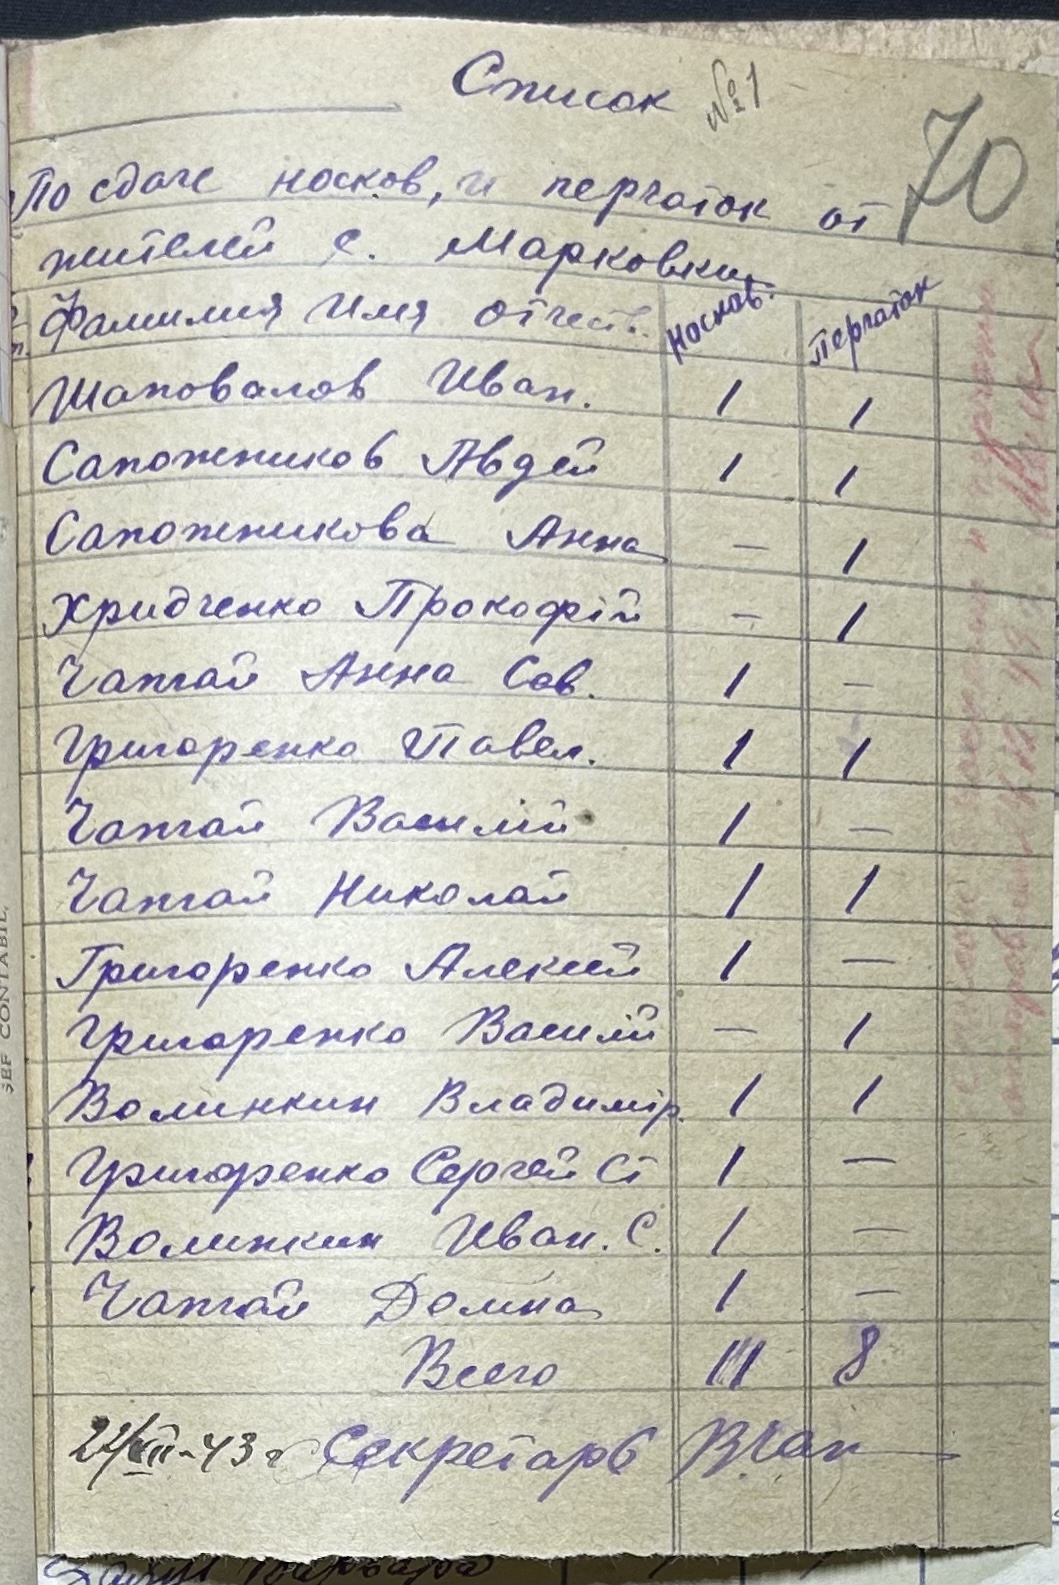 Список №1
70
По сдаче носков, и перчаток от
жителей с. Марковки
Фамилия Имя отчеств. Носков. Перчаток
Шаповалов Иван. 1 1
Сапожников Авдей 1 1
Сапожникова Анна — 1
Хридченко Прокофій — 1
Чапчай Анна Сав. 1 —
Григоренко Павел. 1 1
Чапчай Василій 1 —
Чапчай Николай 1 1
Григоренко Алексей 1 —
Григоренко Василій — 1
Волинкин Владимір. 1 1
Григоренко Сергей Ст 1 —
Волинкин Иван. С. 1 —
Чапчай Домна 1 —
Всего 11 8
22/XII-43 г Секретарь ВЧап
SEF CONTABIL,